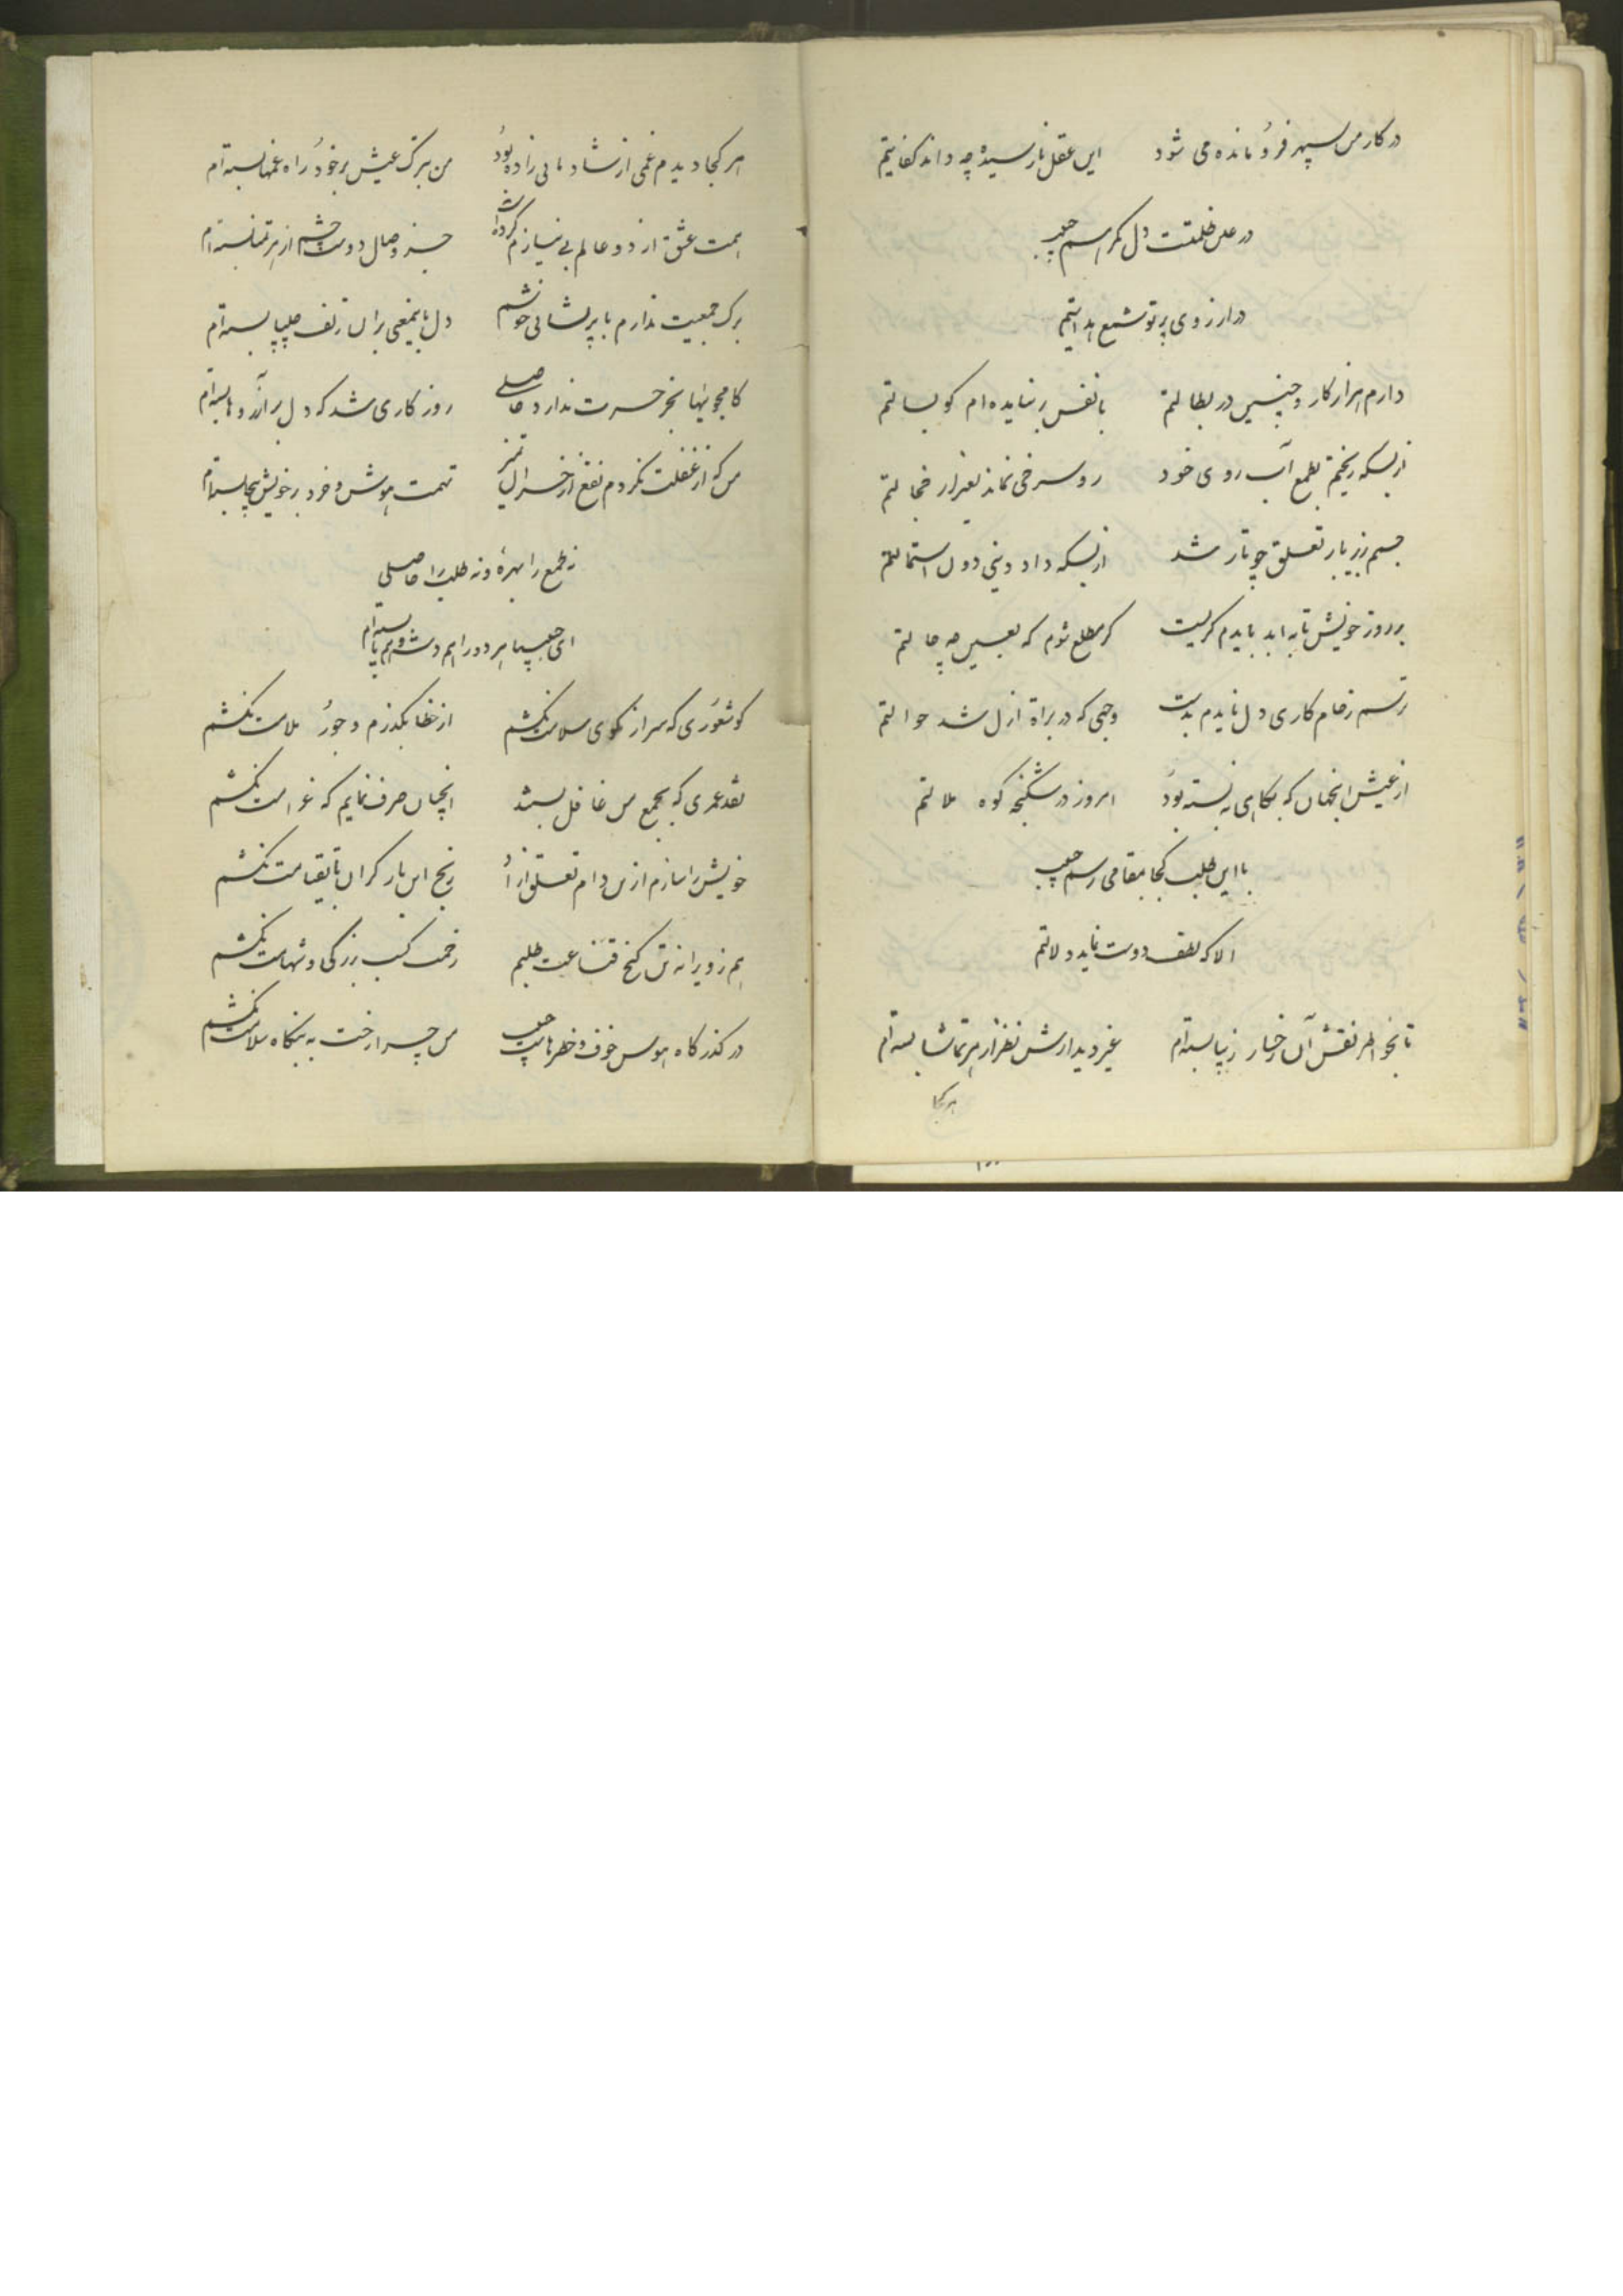 در کار من سپهر فرو مانده می شود این عقل نارسیده چه داند کفایتم
در عین ظلمتت دل گمراهم حبیب
در ارزوی پرتو شمع هدایتم
دارم هزار کار و چنین در بطالتم با نفس بر نیایده ام کو بسالتم
از بسکه ریختم بطمع آب روی خود رو سرخی نماند بغیر از خجالتم
جسمم ز زیر بار تعلق چو تار شد از بسکه داد دینی دون استمالتم
بر روز خویش تا به ابد بایدم گریست گر مطلع شوم که بعین چه حالتم
ترسم ز خام کاری دل نایدم بدست وجهی که در براة ازل شد حوالتم
از عیش انجهان که بکاهی نه بسته بود امروز در شکنجه کوه ملالتم
با این طلب کجا بمقامی رسم حبیب
الا که لطف دوست نماید دلالتم
تا بخواطر نقش آن رخسار زیبا بسته ام غیر دیدارش نظر از هر تماشا بسته ام
هر کجا
هر کجا دیدم غمی از شادمانی زاده بود من بترک عیش بر خود راه غمها بسته ام
همت عشق از دو عالم بی نیازم کرده است جز وصال دوست چشم از هر تمنا بسته ام
برک جمعیت ندارم با پریشانی خوشم دل بان زلف چلیپا بسته ام
کامجوییها بجز حسرت ندارد حاصلی روزکاری شد که دل بر آرزوها بسته ام
من که از غفلت نکردم نفع از خسران تمیز تهمت هوش و خرد بر خویش بیجا بسته ام
نه طمع را بهرۀ و نه طلب را حاصلی
ای حبیبا هر دو را هم دست و هم پا بسته ام
کو شعوری که سر از کوی سلامت نکشم از خطا بگذرم و جور ملامت نکشم
نقد عمری که بجمع من غافل بستند انچنان صرف نمایم که غرامت نکشم
خویش را سازم ازین دام تعلق ازاد رنج این بار کران تا بقیامت نکشم
هم ز ویرانه تن کنج قناعت طلبم زحمت کسب بزرگی و شهامت نکشم
در کذرکاه هوس خوف و خطرهاست حبیب من چرا رخت به بنکاه سلامت نکشم